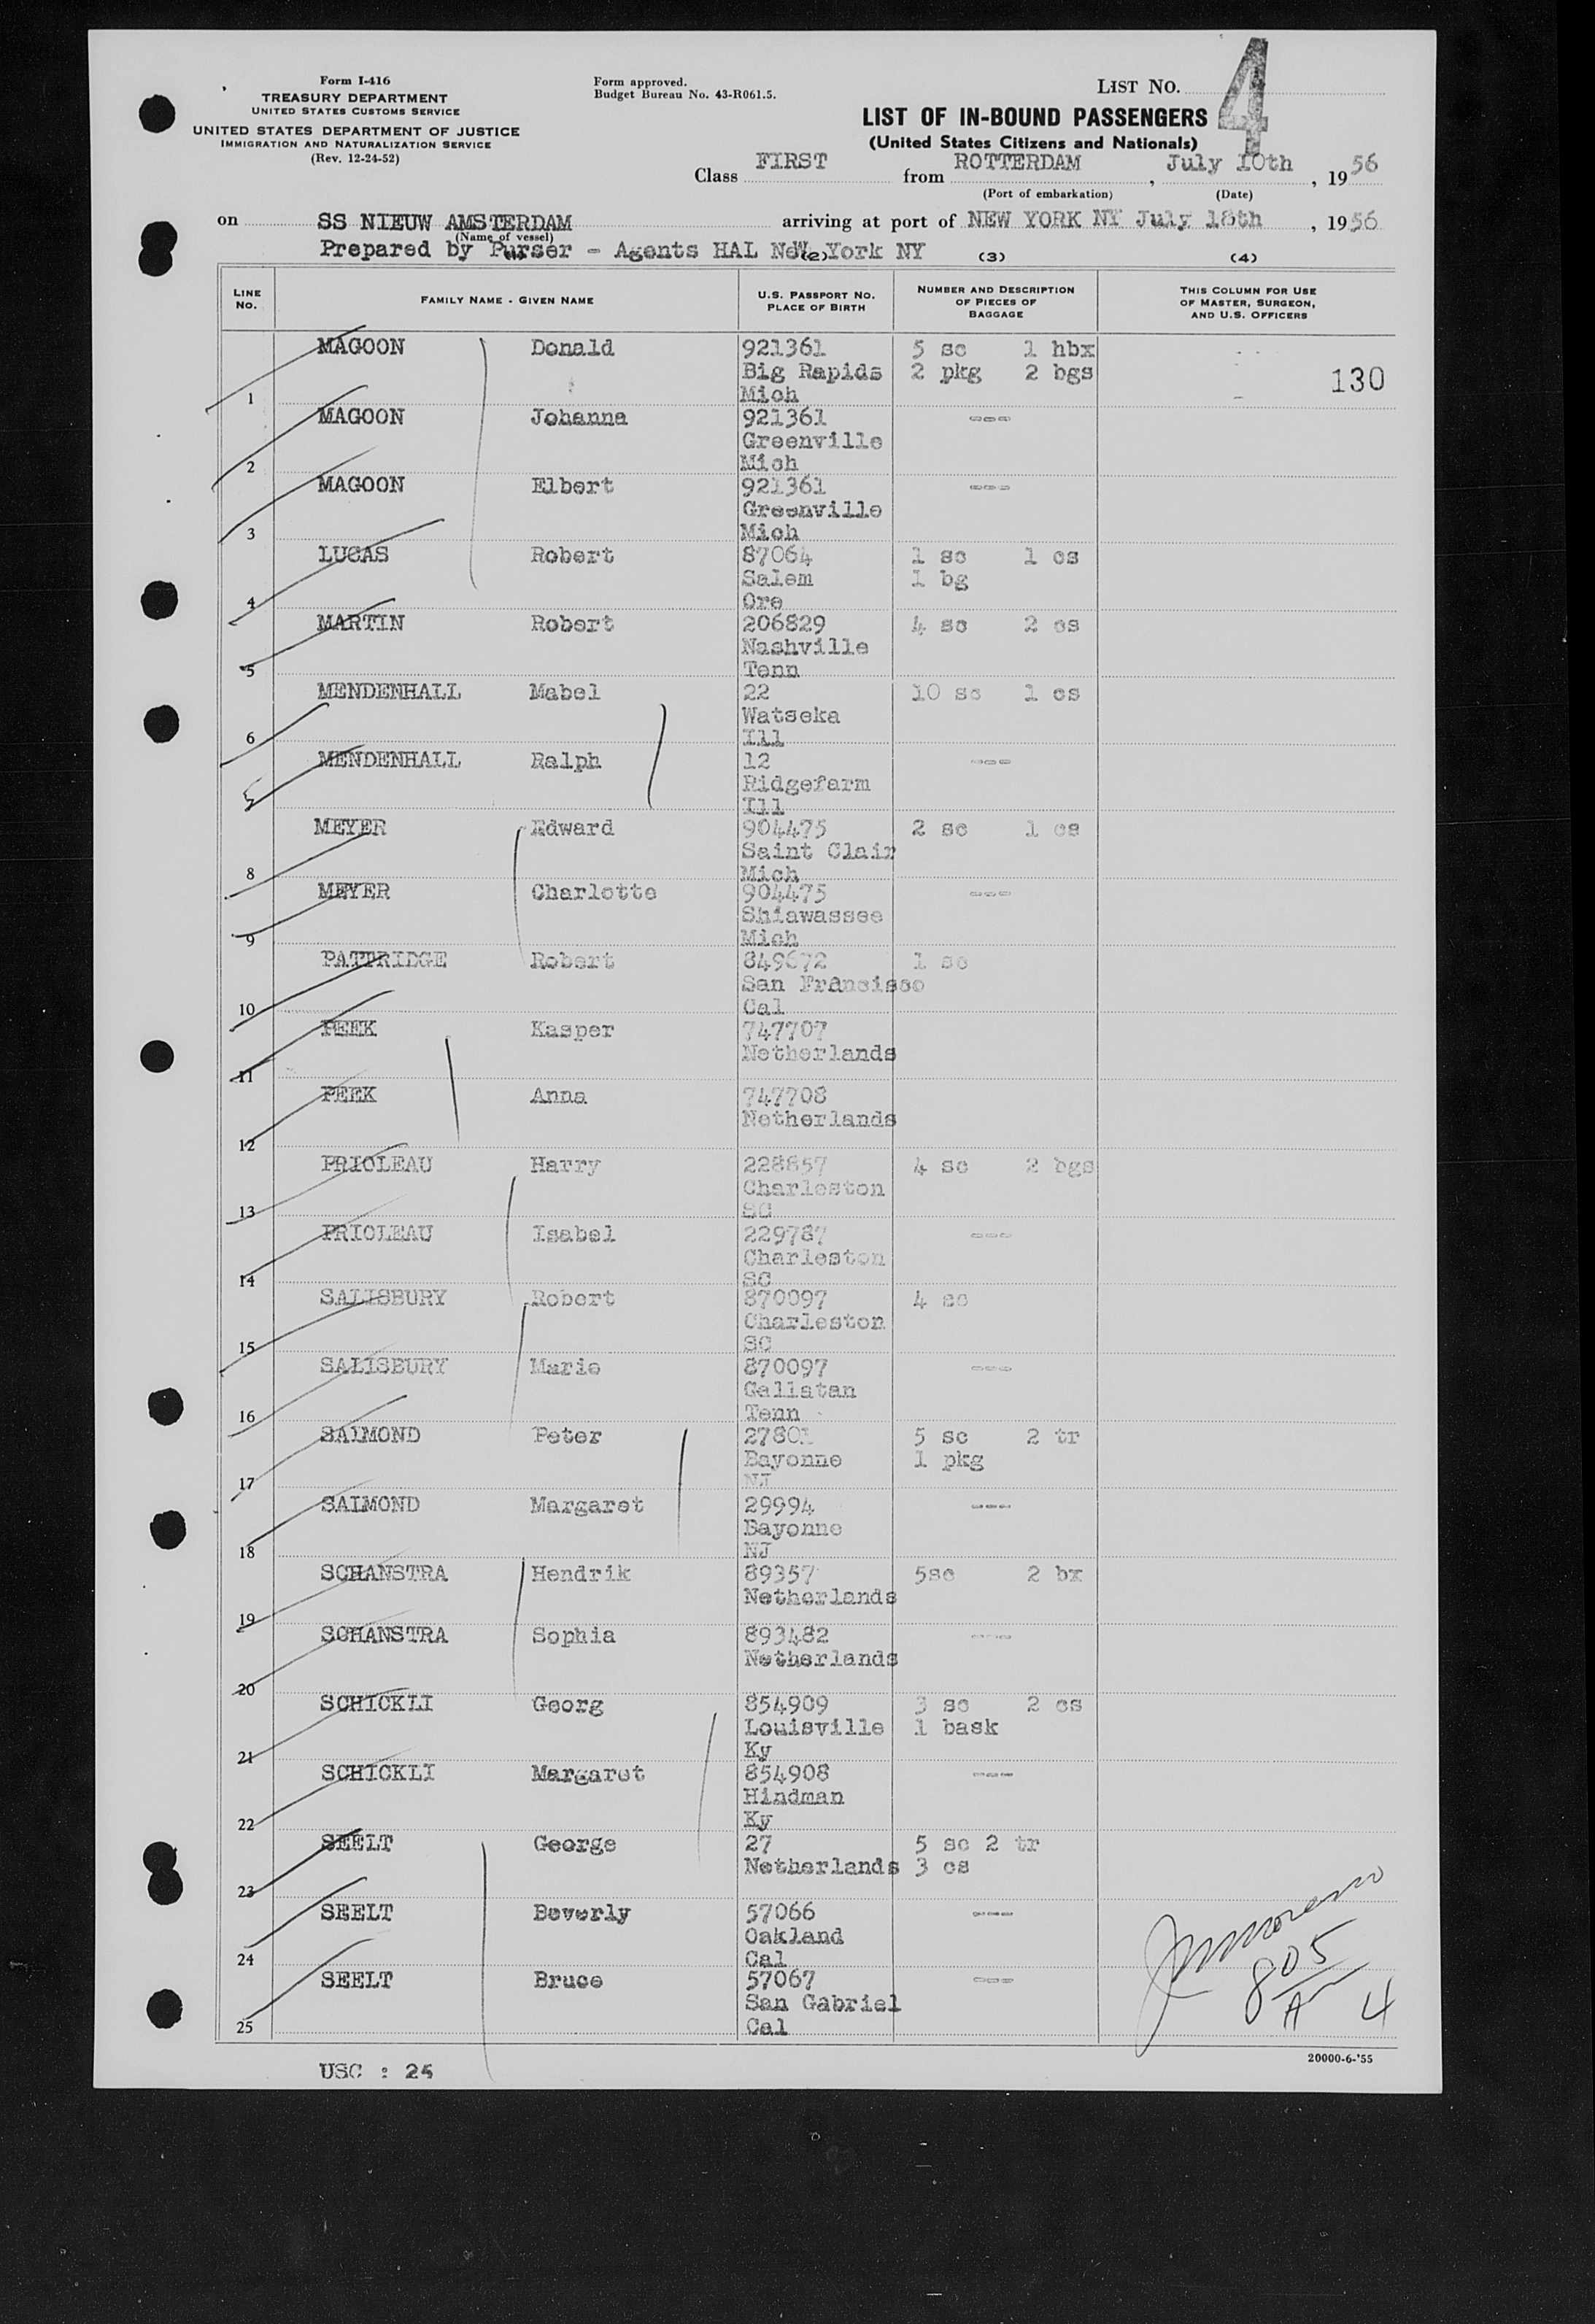 Form I-416
TREASURY DEPARTMENT
UNITED STATES CUSTOMS SERVICE
UNITED STATES DEPARTMENT OF JUSTICE
IMMIGRATION AND NATURALIZATION SERVICE
(Rev. 12-24-52)
Form approved.
Budget Bureau No. 43-R061.5.
LIST NO. 4
LIST OF IN-BOUND PASSENGERS
(United States Citizens and Nationals)
Class FIRST from ROTTERDAM, July 10th, 1956
(Port of embarkation) (Date)
on SS NIEUW AMSTERDAM arriving at port of NEW YORK NY July 18th, 1956
(Name of vessel)
Prepared by Purser - Agents HAL New York NY
(2) (3) (4)
LINE NO. FAMILY NAME - GIVEN NAME U.S. PASSPORT NO. PLACE OF BIRTH NUMBER AND DESCRIPTION OF PIECES OF BAGGAGE THIS COLUMN FOR USE OF MASTER, SURGEON, AND U.S. OFFICERS
MAGOON Donald 921361 5 sc 1 hbx
Big Rapids 2 pkg 2 bgs 130
1 Mich
MAGOON Johanna 921361 ---
Greenville
2 Mich
MAGOON Elbert 921361 ---
Greenville
3 Mich
LUCAS Robert 87064 1 sc 1 cs
Salem 1 bg
4 Ore
MARTIN Robert 206829 4 sc 2 cs
Nashville
5 Tenn
MENDENHALL Mabel 22 10 sc 1 cs
Watseka
6 Ill
MENDENHALL Ralph 12 ---
Ridgefarm
7 Ill
MEYER Edward 904475 2 sc 1 cs
Saint Clair
8 Mich
MEYER Charlotte 904475 ---
Shiawassee
9 Mich
PATTRIDGE Robert 849672 1 sc
San Fransisco
10 Cal
PEEK Kasper 747707
Netherlands
11
PEEK Anna 747708
Netherlands
12
PRIOLEAU Harry 228857 4 sc 2 bgs
Charleston
13 SC
PRIOLEAU Isabel 229787 ---
Charleston
14 SC
SALISBURY Robert 870097 4 sc
Charleston
15 SC
SALISBURY Marie 870097 ---
Gallatan
16 Tenn
SALMOND Peter 27801 5 sc 2 tr
Bayonne 1 pkg
17 NJ
SALMOND Margaret 29994 ---
Bayonne
18 NJ
SCHANSTRA Hendrik 89357 5sc 2 bx
Netherlands
19
SCHANSTRA Sophia 893482 ---
Netherlands
20
SCHICKLI Georg 854909 3 sc 2 cs
Louisville 1 bask
21 Ky
SCHICKLI Margaret 854908 ---
Hindman
22 Ky
SEELT George 27 5 sc 2 tr
Netherlands 3 cs
23
SEELT Beverly 57066 ---
Oakland
24 Cal
SEELT Bruce 57067 ---
San Gabriel
25 Cal
805
4
20000-6-'55
USC : 24